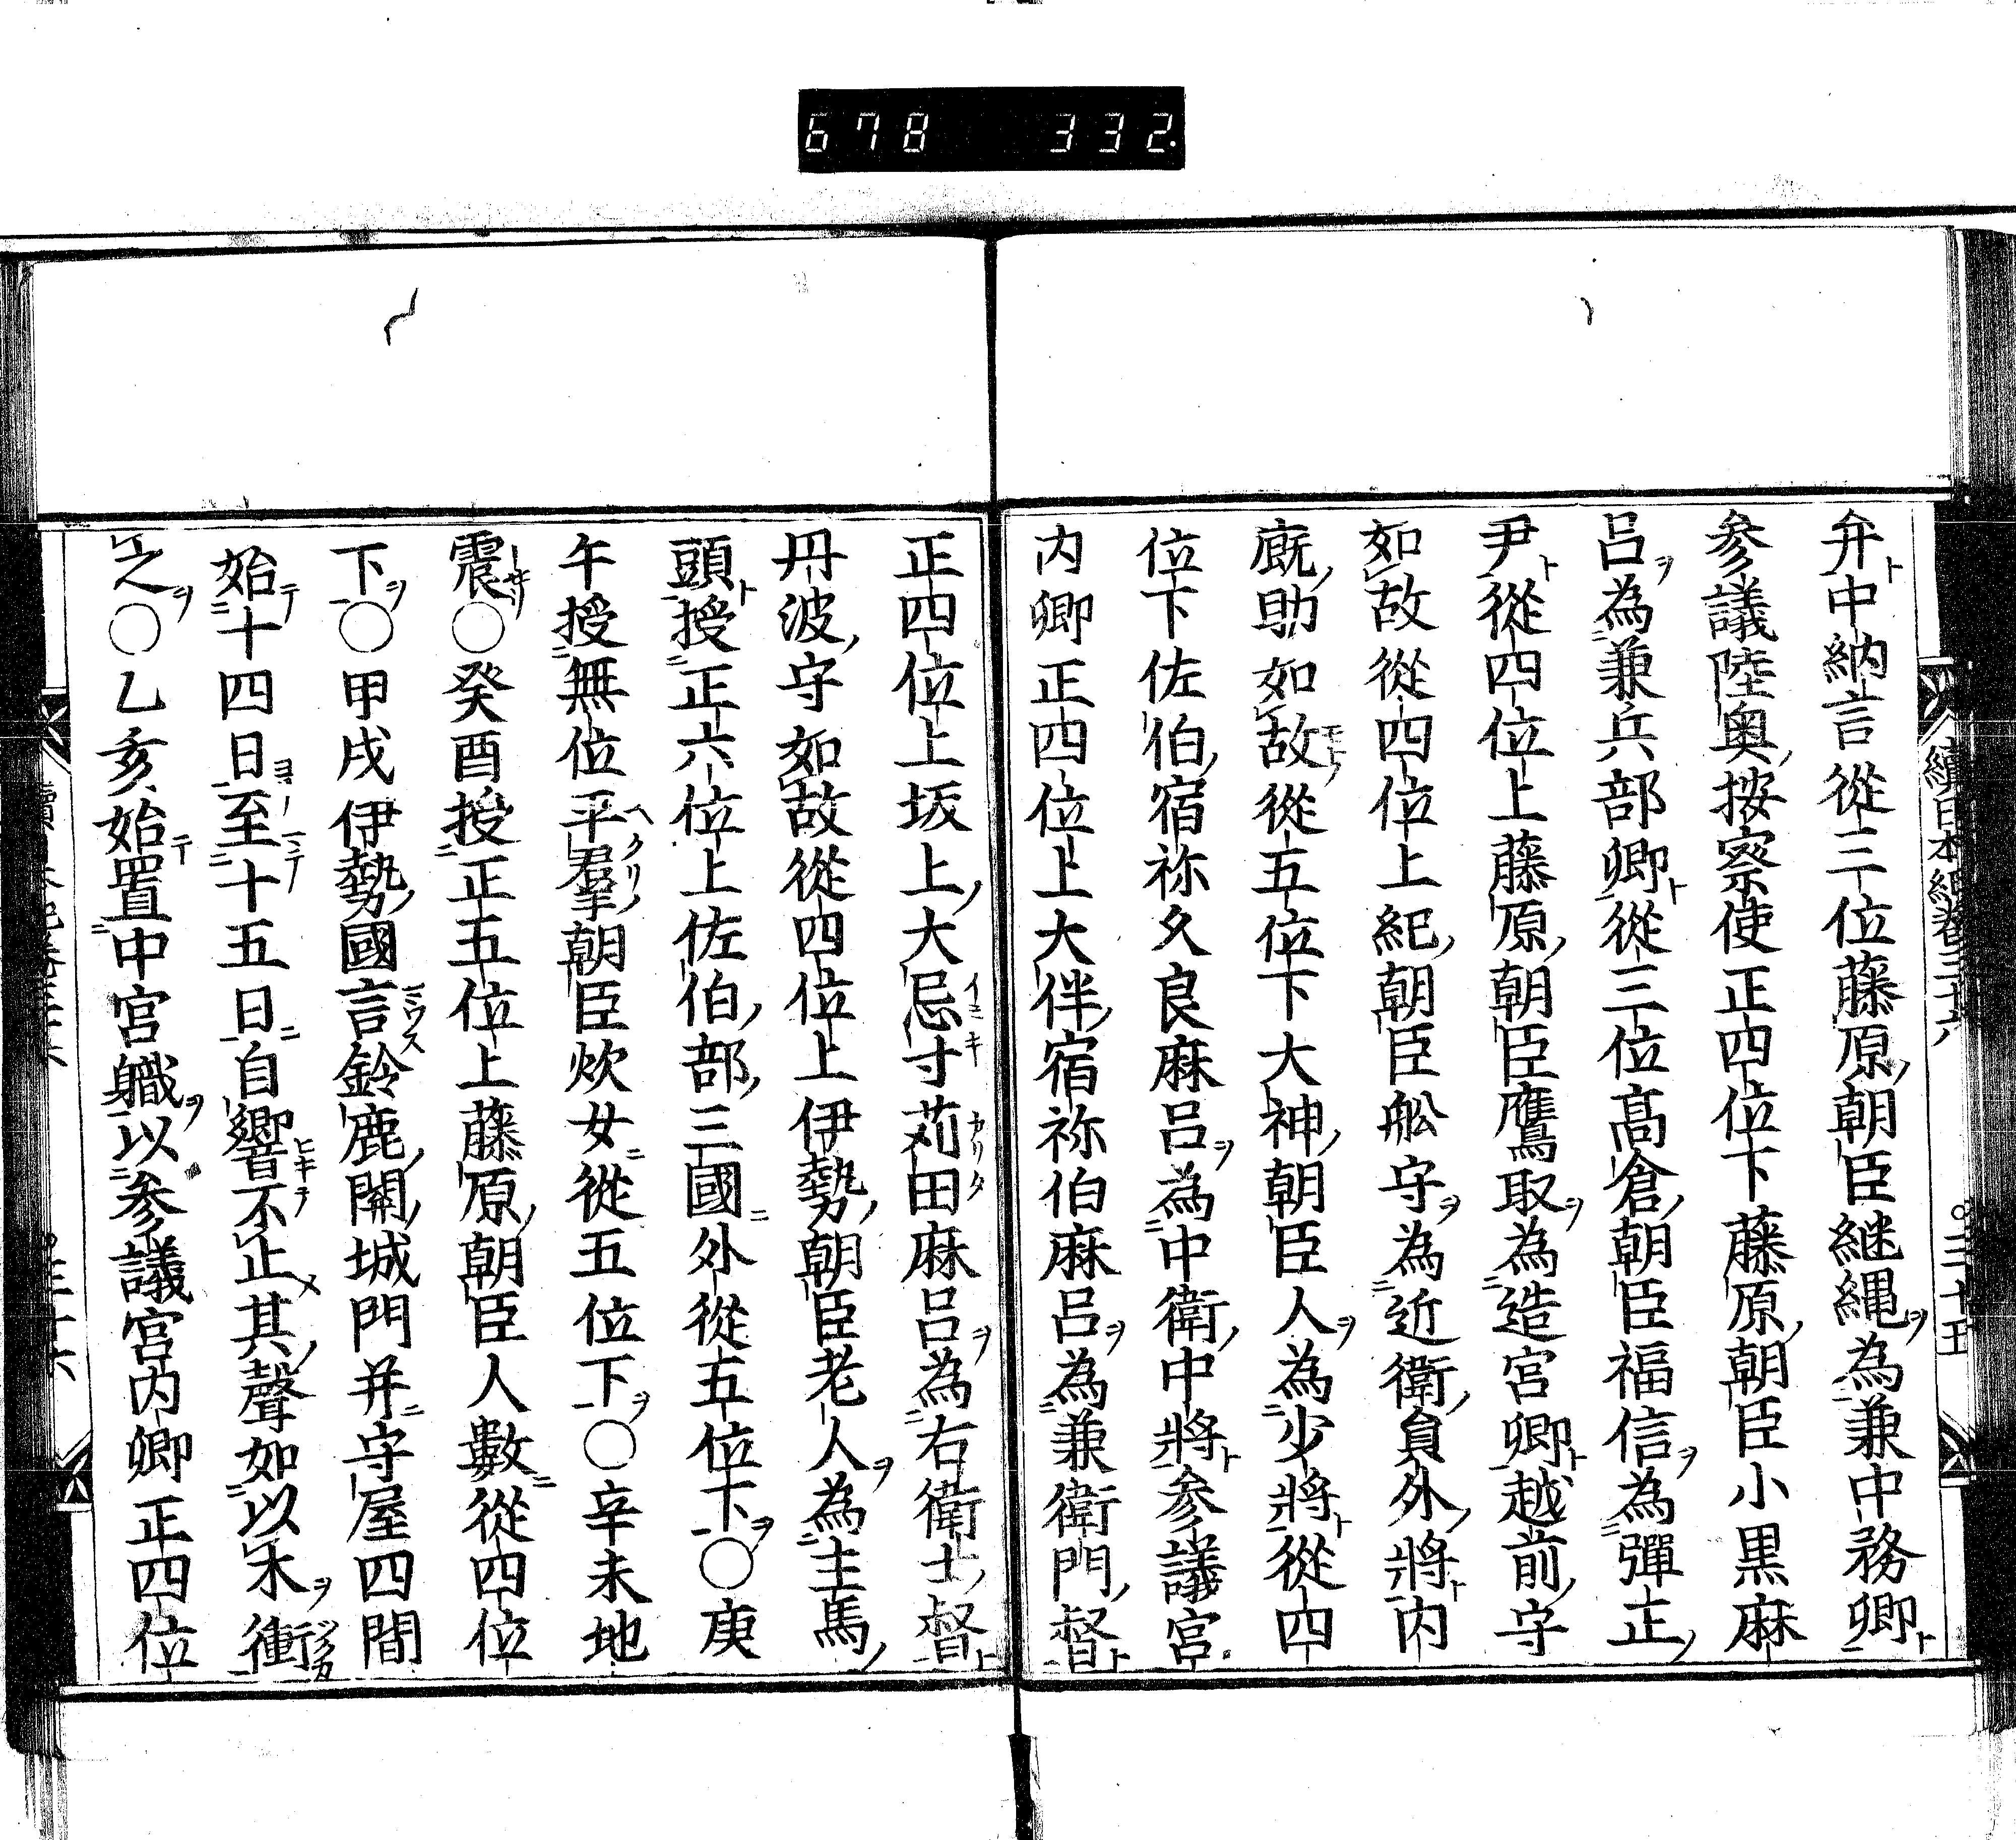 678 332
續日本紀卷三十六 三十五
弁中納言從三位藤原朝臣継縄為兼中務卿
参議陸奥按察使正四位下藤原朝臣小黒麻
呂為兼兵部卿從三位髙倉朝臣福信為彈正
尹從四位上藤原朝臣鷹取為造宮卿越前守
如故從四位上紀朝臣舩守為近衛貟外將内
廐助如故從五位下大神朝臣人為少將從四
位下佐伯宿祢久良麻呂為中衛中將参議宮
内卿正四位上大伴宿祢伯麻呂為兼衛門督
正四位上坂上大忌寸苅田麻呂為右衛士督
丹波守如故從四位上伊勢朝臣老人為主馬
頭授正六位上佐伯部三國外從五位下○庚
午授無位平羣朝臣炊女從五位下○辛未地
震○癸酉授正五位上藤原朝臣人數從四位
下○甲戌伊勢國言鈴鹿關城門并守屋四間
始十四日至十五日自響不止其聲如以木衝
之○乙亥始置中宮軄以参議宮内卿正四位
三十六